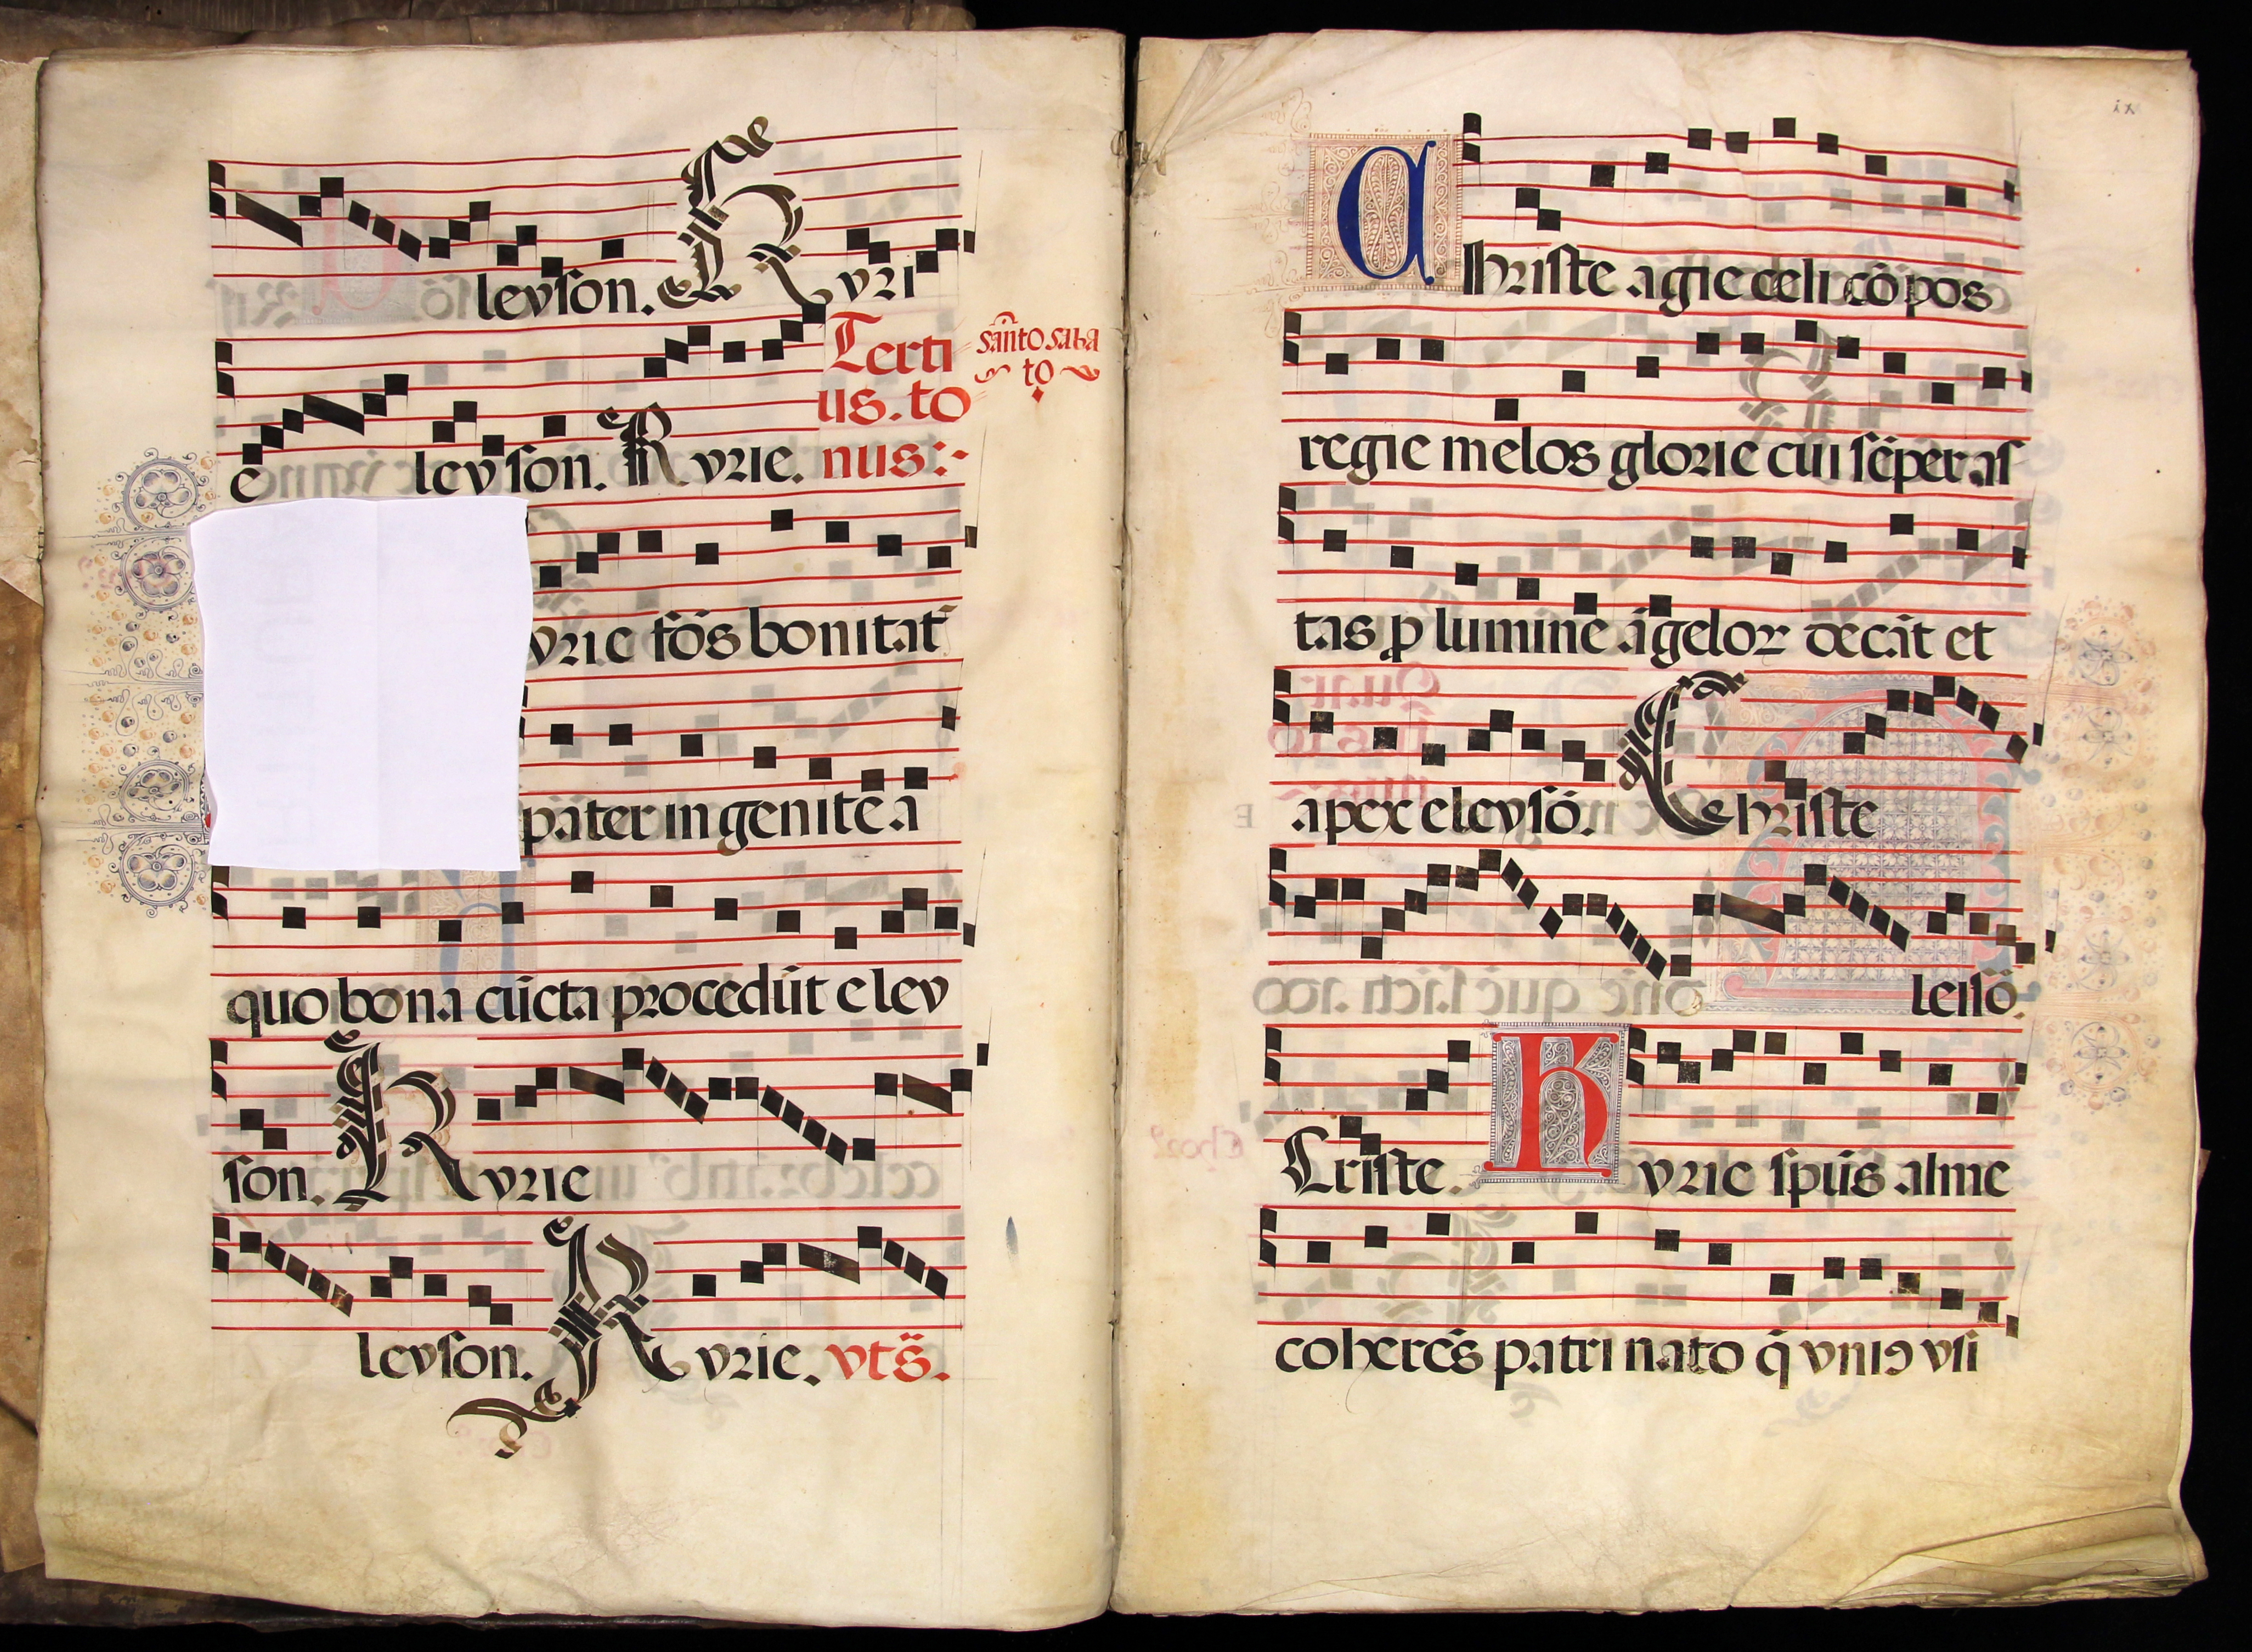 leyson. Kyri
Terti
us. to
sãnto saba
to
e leyson. Kyrie. nus:·
yrie fõs bonitat᷒
pater ingenitẽ a
quo bona cũcta procedũt eley
son. Kyrie
leyson. Kyrie. vts̃.
ix
Christe agie celi cõpos
regie melos glorie cui sẽper as
tas ꝓ lumine ãgeloꝝ decãt et
apex eleysõ. Christe
leisõ.
Criste. Kyrie spũs alme
coherẽs patri nato q̃ vniꝰ vsi